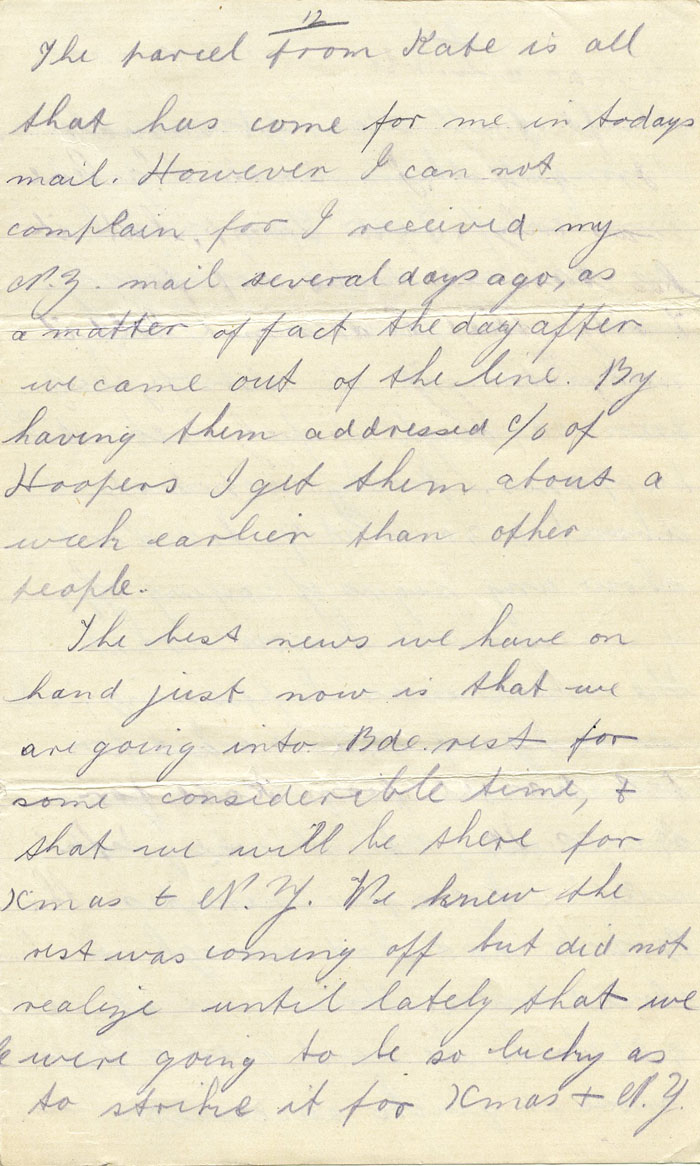 12
The parcel from Kate is all
that has come for me in todays
mail. However I can not
complain, for I received my
N.Z. mail several days ago, as
a matter of fact the day after
we came out of the line. By
having them addressed c/o of
Hoopers I get them about a
week earlier than other
people.
The best news we have on
hand just now is that we
are going into Bde. rest for
some considerible time, &
that we will be there for
Xmas & N.Y. We knew the
rest was coming off but did not
realize until lately that we
were going to be so lucky as
to strike it for Xmas & N.Y.